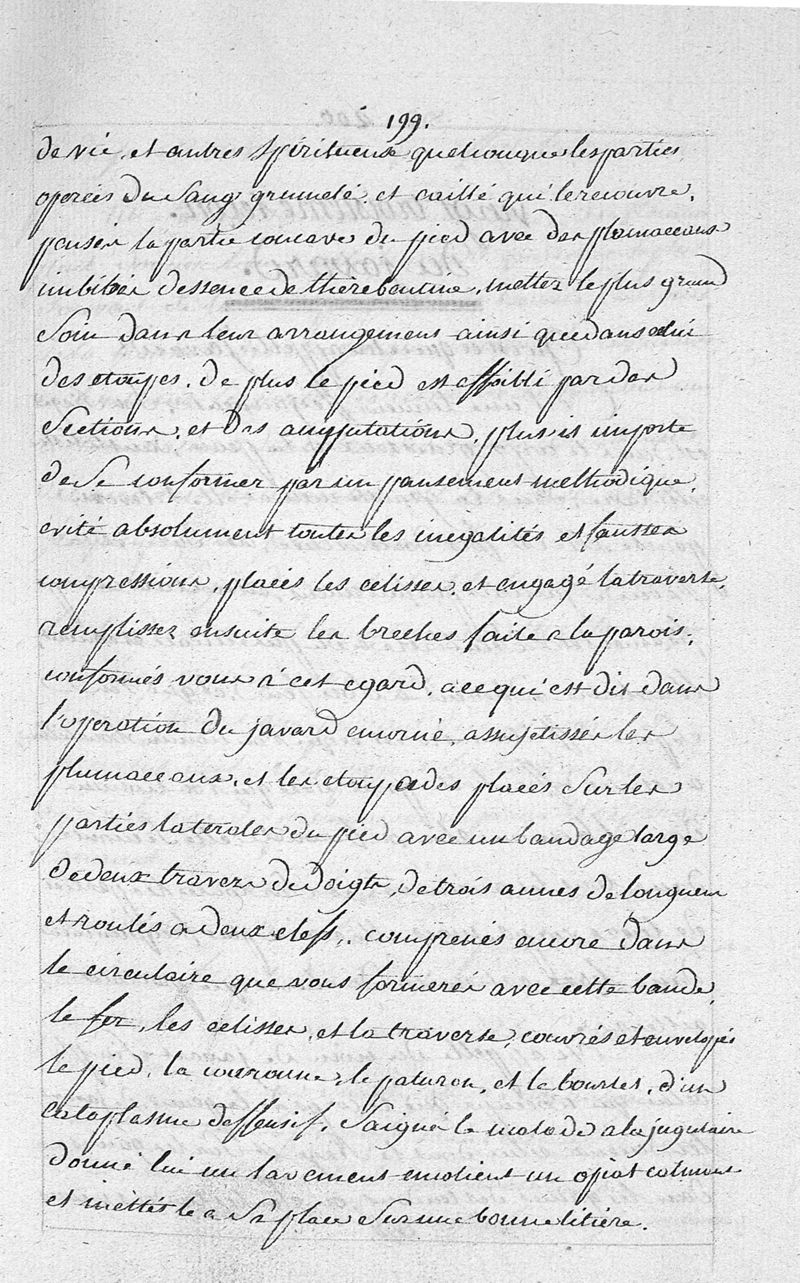 199.
de vie, et autres Spiritueux quelconque les parties
operées du Sang grumelé et caillé qui le recouvre,
pensés la partie concave du pied avec des plumaceaux
imbibés dessence de thérebentine, mettez le plus grand
Soin dans leur arrangement ainsi que dans celui
des etoupes. de plus le pied est affoibli par des
Sections, et des amputations, plus il importe
de Se conformer par un pansement methodique,
evité absolument toutes les inegalités et fausses
compressions, placés les eclisses, et engagé la traverse,
remplissez ensuite les breches faite a la parois,
conformés vous à cet egard, a ce qui est dit dans
l'operation du javard encorné, assujetissés les
plumaceaux, et les etoupes des placés Sur les
parties laterales du pied avec un bandage large
de deux travers de doigts, de trois aunes de longueur
et roulés a deux chefs, comprenés encore dans
le circulaire que vous formerés avec cette bande,
le fer, les eclisses, et la traverse, couvrés et envelopés
le pied, la couronne, le paturon, et le boulet, d'un
cataplasme deffensif, Saigné le malade a la jugulaire
donné lui un lavement emolient un opiat calmant
et mettés le a Sa place Sur une bonne litière.